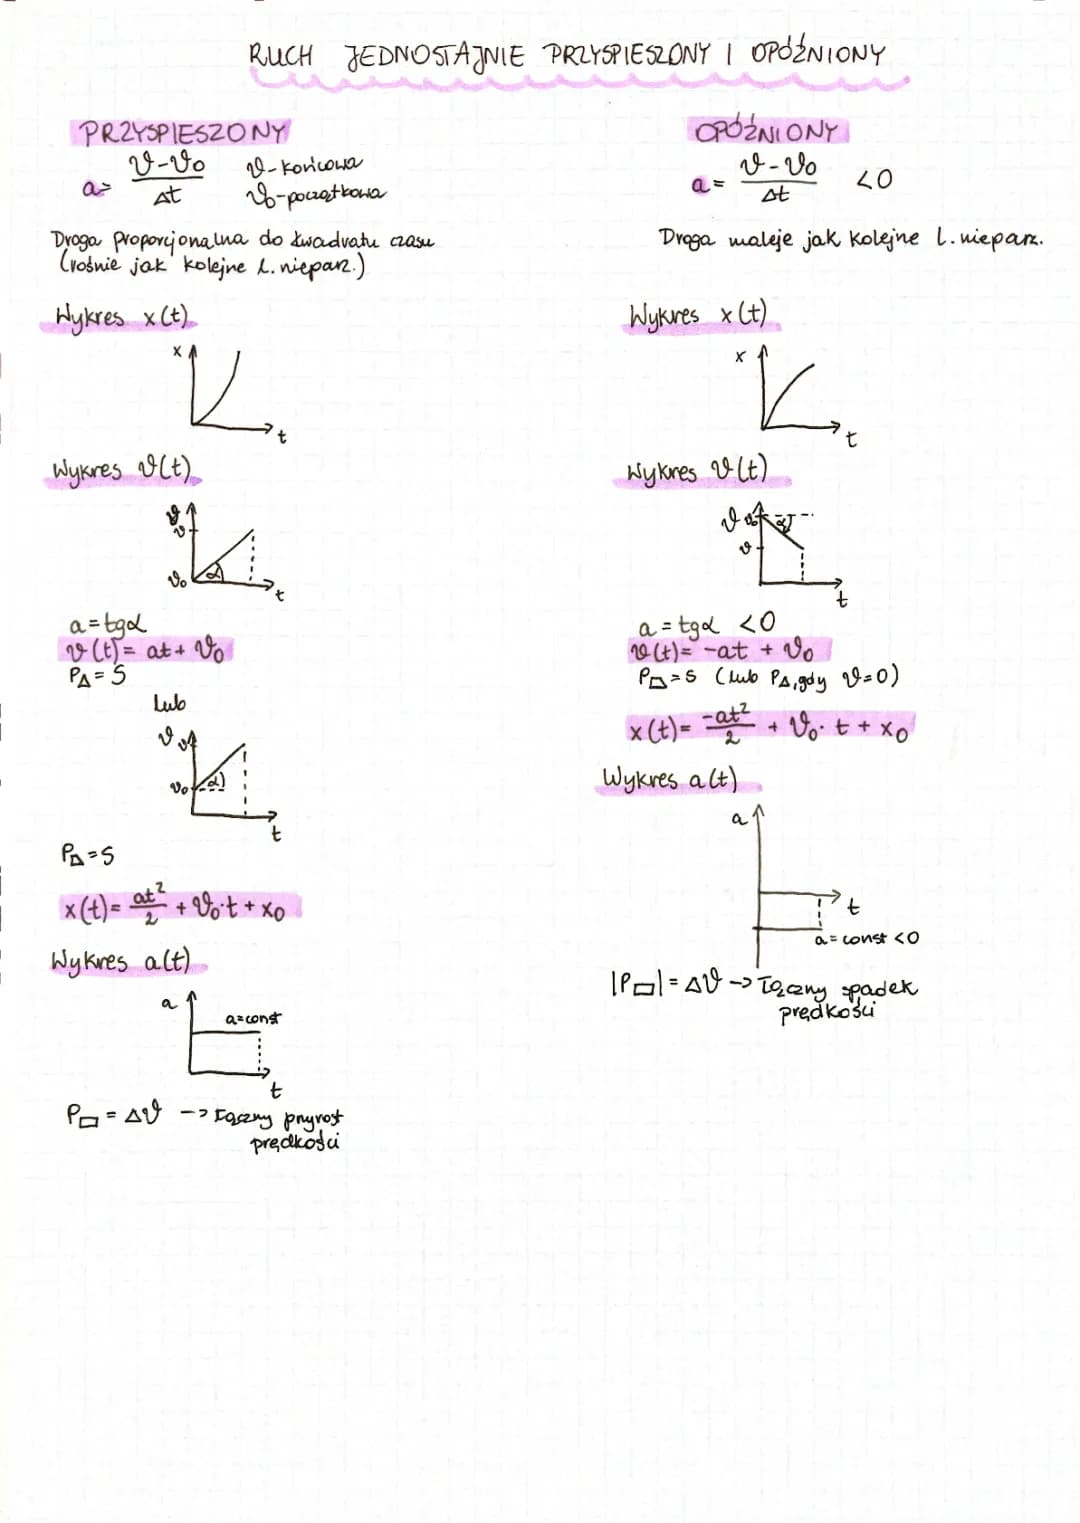 RUCH JEDNOSTAJNIE PRZYSPIESZONY I OPÓŹNIONY
PRZYSPIESZONY
a = (v - v₀) / Δt
v - końcowa
v₀ - początkowa
Droga proporcjonalna do kwadratu czasu
(rośnie jak kolejne l. nieparz.)
Wykres x(t)
x
t
Wykres v(t)
v
v
v₀
α
t
a = tgα
v(t) = at + v₀
P△ = S
lub
v
v
v₀
α
t
P⏢ = S
x(t) = at²/2 + v₀·t + x₀
Wykres a(t)
a
a = const
t
P▭ = Δv -> łączny przyrost
prędkości
OPÓŹNIONY
a = (v - v₀) / Δt < 0
Droga maleje jak kolejne l. nieparz.
Wykres x(t)
x
t
Wykres v(t)
v
v₀
α
v
t
a = tgα < 0
v(t) = -at + v₀
P⏢ = s (lub P△, gdy v = 0)
x(t) = -at²/2 + v₀·t + x₀
Wykres a(t)
a
t
a = const < 0
|P▭| = Δv -> łączny spadek
prędkości